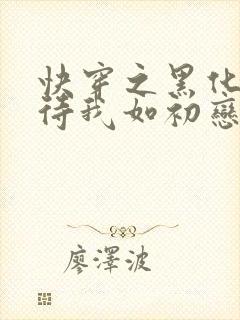 快穿之黑化
待我如初戀
廖澤波